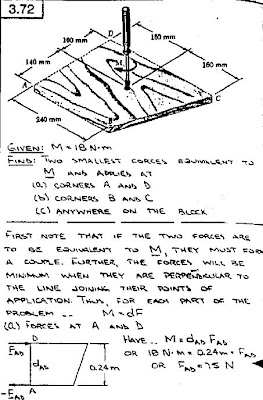 3.72
160 mm
D
140 mm
M
160 mm
A
B
C
240 mm
GIVEN: M = 18 N·m
FIND: TWO SMALLEST FORCES EQUIVALENT TO
M AND APPLIED AT
(a) CORNERS A AND D
(b) CORNERS B AND C
(c) ANYWHERE ON THE BLOCK
FIRST NOTE THAT IF THE TWO FORCES ARE
TO BE EQUIVALENT TO M, THEY MUST FORM
A COUPLE. FURTHER, THE FORCES WILL BE
MINIMUM WHEN THEY ARE PERPENDICULAR TO
THE LINE JOINING THEIR POINTS OF
APPLICATION. THUS, FOR EACH PART OF THE
PROBLEM -- M = dF
(a) FORCES AT A AND D
D HAVE.. M = dAD FAD
FAD OR 18 N·m = 0.24m × FAD
dAD 0.24m OR FAD = 75 N
-FAD A